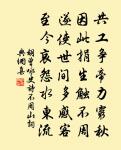 共工爭帝力窮秋
因此捐生觸不周
遂使世間多感客
至今哀怨水東流
胡曾咏史詩不周山詞